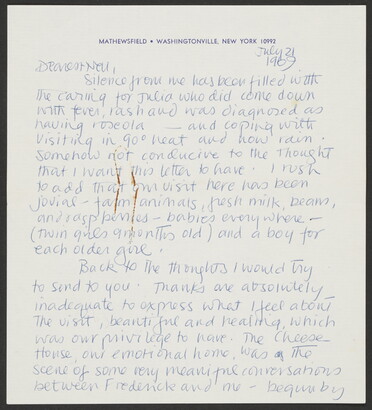 MATHEWSFIELD • WASHINGTONVILLE, NEW YORK 10992
July 21
1967
Dearest Nell,
Silence from me has been filled with
the caring for Julia who did come down
with fever, rash and was diagnosed as
having roseola — and coping with
visiting in 90° heat and now rain.
Somehow not conducive to the thought
that I want this letter to have. I rush
to add that our visit here has been
jovial - farm animals, fresh milk, beans,
and raspberries - babies everywhere -
(twin girls 9 months old) and a boy for
each older girl.
Back to the thoughts I would try
to send to you. Thanks are absolutely
inadequate to express what I feel about
the visit, beautiful and healing, which
was our privilege to have. The Cheese
House, our emotional home, was the
scene of some very meaningful conversations
between Frederick and me - begun by